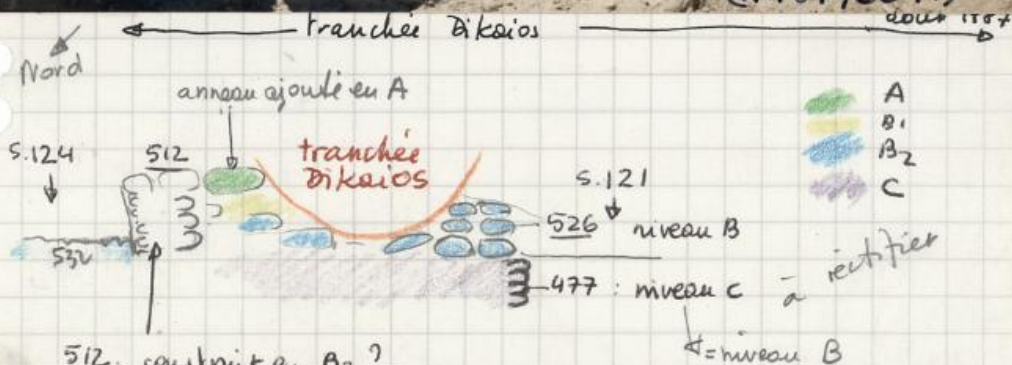 tranchée Dikaios
Nord
anneau ajouté en A
A
B1
B2
C
S.124
512
tranchée
Dikaios
S.121
526 niveau B
532
477 : niveau C
à rectifier
= niveau B
512 construit en B2 ?